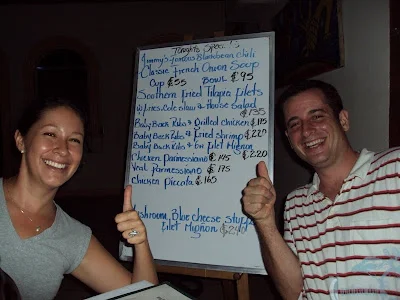 Tonights Specials
Jimmy's Famous Blackbean Chili
Classic French Onion Soup
Cup ₡55 Bowl ₡95
Southern Fried Tilapia Filets
w/Fries, Cole slaw & House Salad
₡135
Baby Back Ribs & Grilled Chicken ₡195
Baby Back Ribs & Fried Shrimp ₡220
Baby Back Ribs & 6oz Filet Mignon
₡220
Chicken Parmessiano ₡145
Veal Parmessiano ₡175
Chicken Piccata ₡165
Mushroom Blue cheese Stuffed
Filet Mignon ₡240